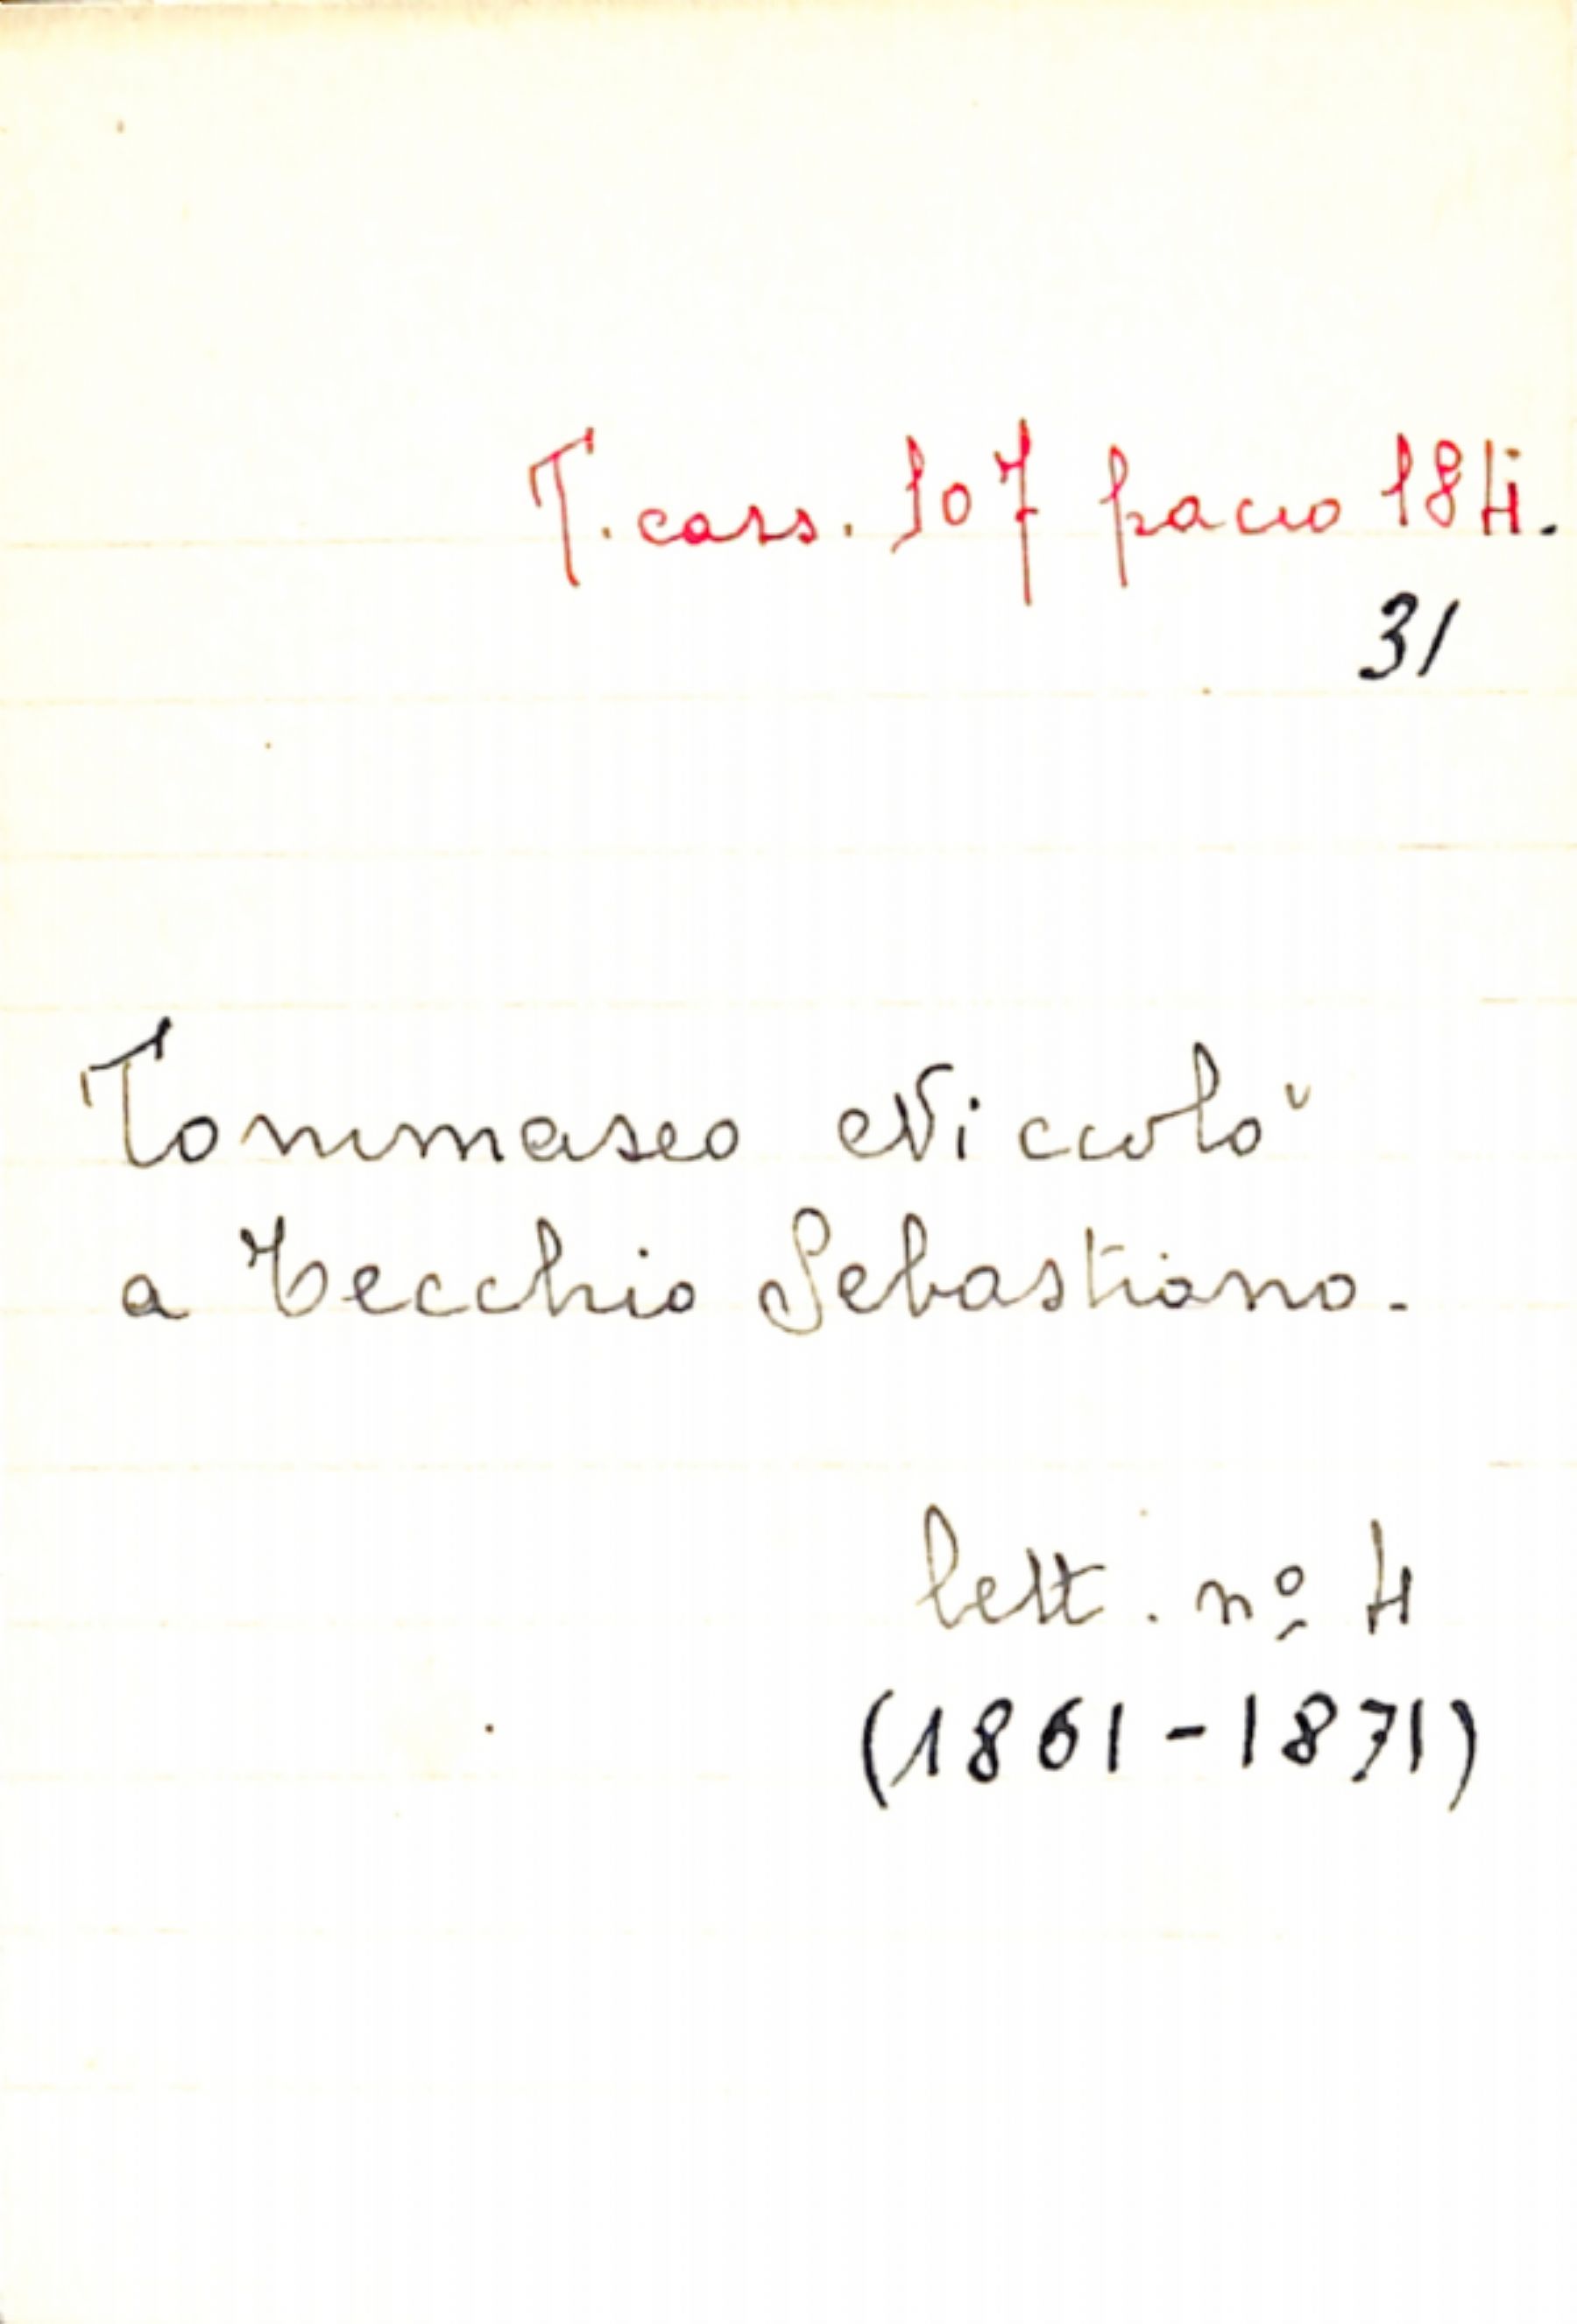 T. cass. 107 pacco 184.
31
Tommaseo Niccolò
a Tecchio Sebastiano.
lett. nº 4
(1861-1871)